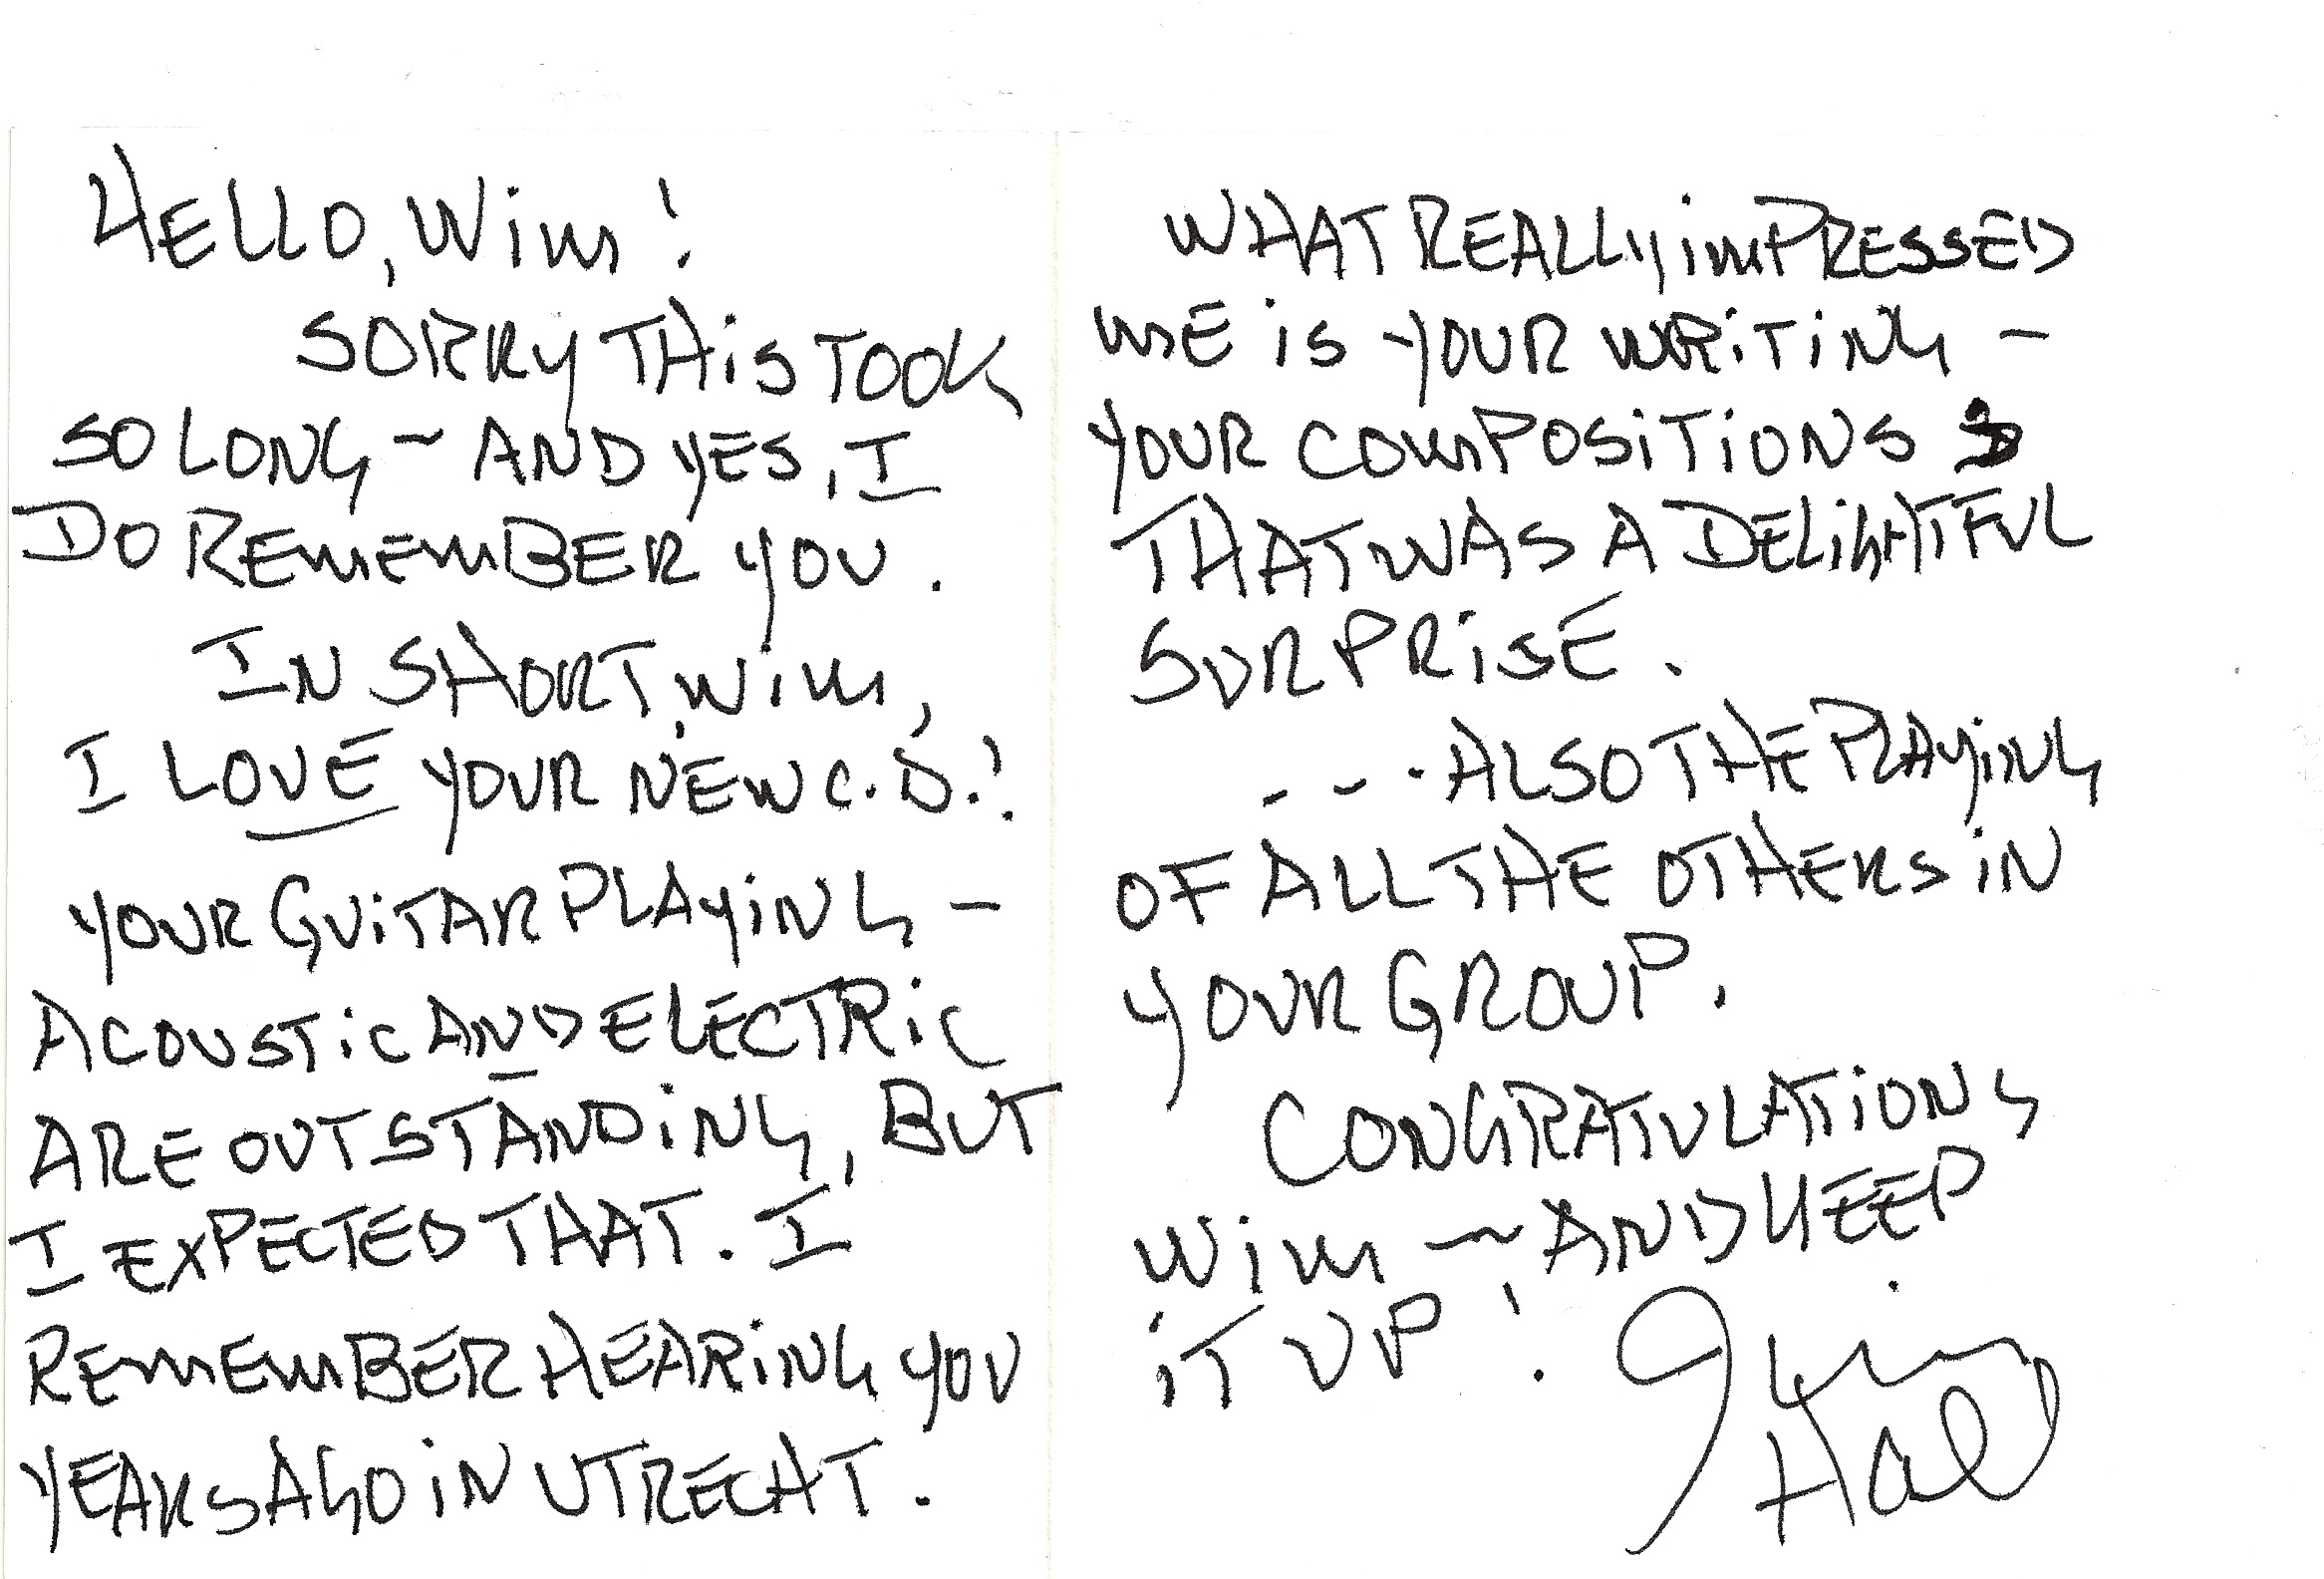 HELLO, Wim!
SORRY THiS TOOK
SO LONG - AND YES, I
DO REmEmBER YOU.
IN SHORT, Wim,
I LOVE YOUR NEW C.D.!
YOUR GUiTAR PLAYiNG -
ACOUSTiC AND ELECTRiC
ARE OUTSTANDiNG, BUT
I EXPECTED THAT. I
REmEmBER HEARiNG YOU
YEARS AGO iN UTRECHT.
WHAT REALLY imPRESSED
mE iS YOUR WRiTiNG -
YOUR COmPOSiTiONS
THAT WAS A DELiGHTFUL
SURPRiSE.
... ALSO THE PLAYiNG
OF ALL THE OTHERS iN
YOUR GROUP.
CONGRATULATiONS,
Wim - AND KEEP
iT UP!
Jim
Hall